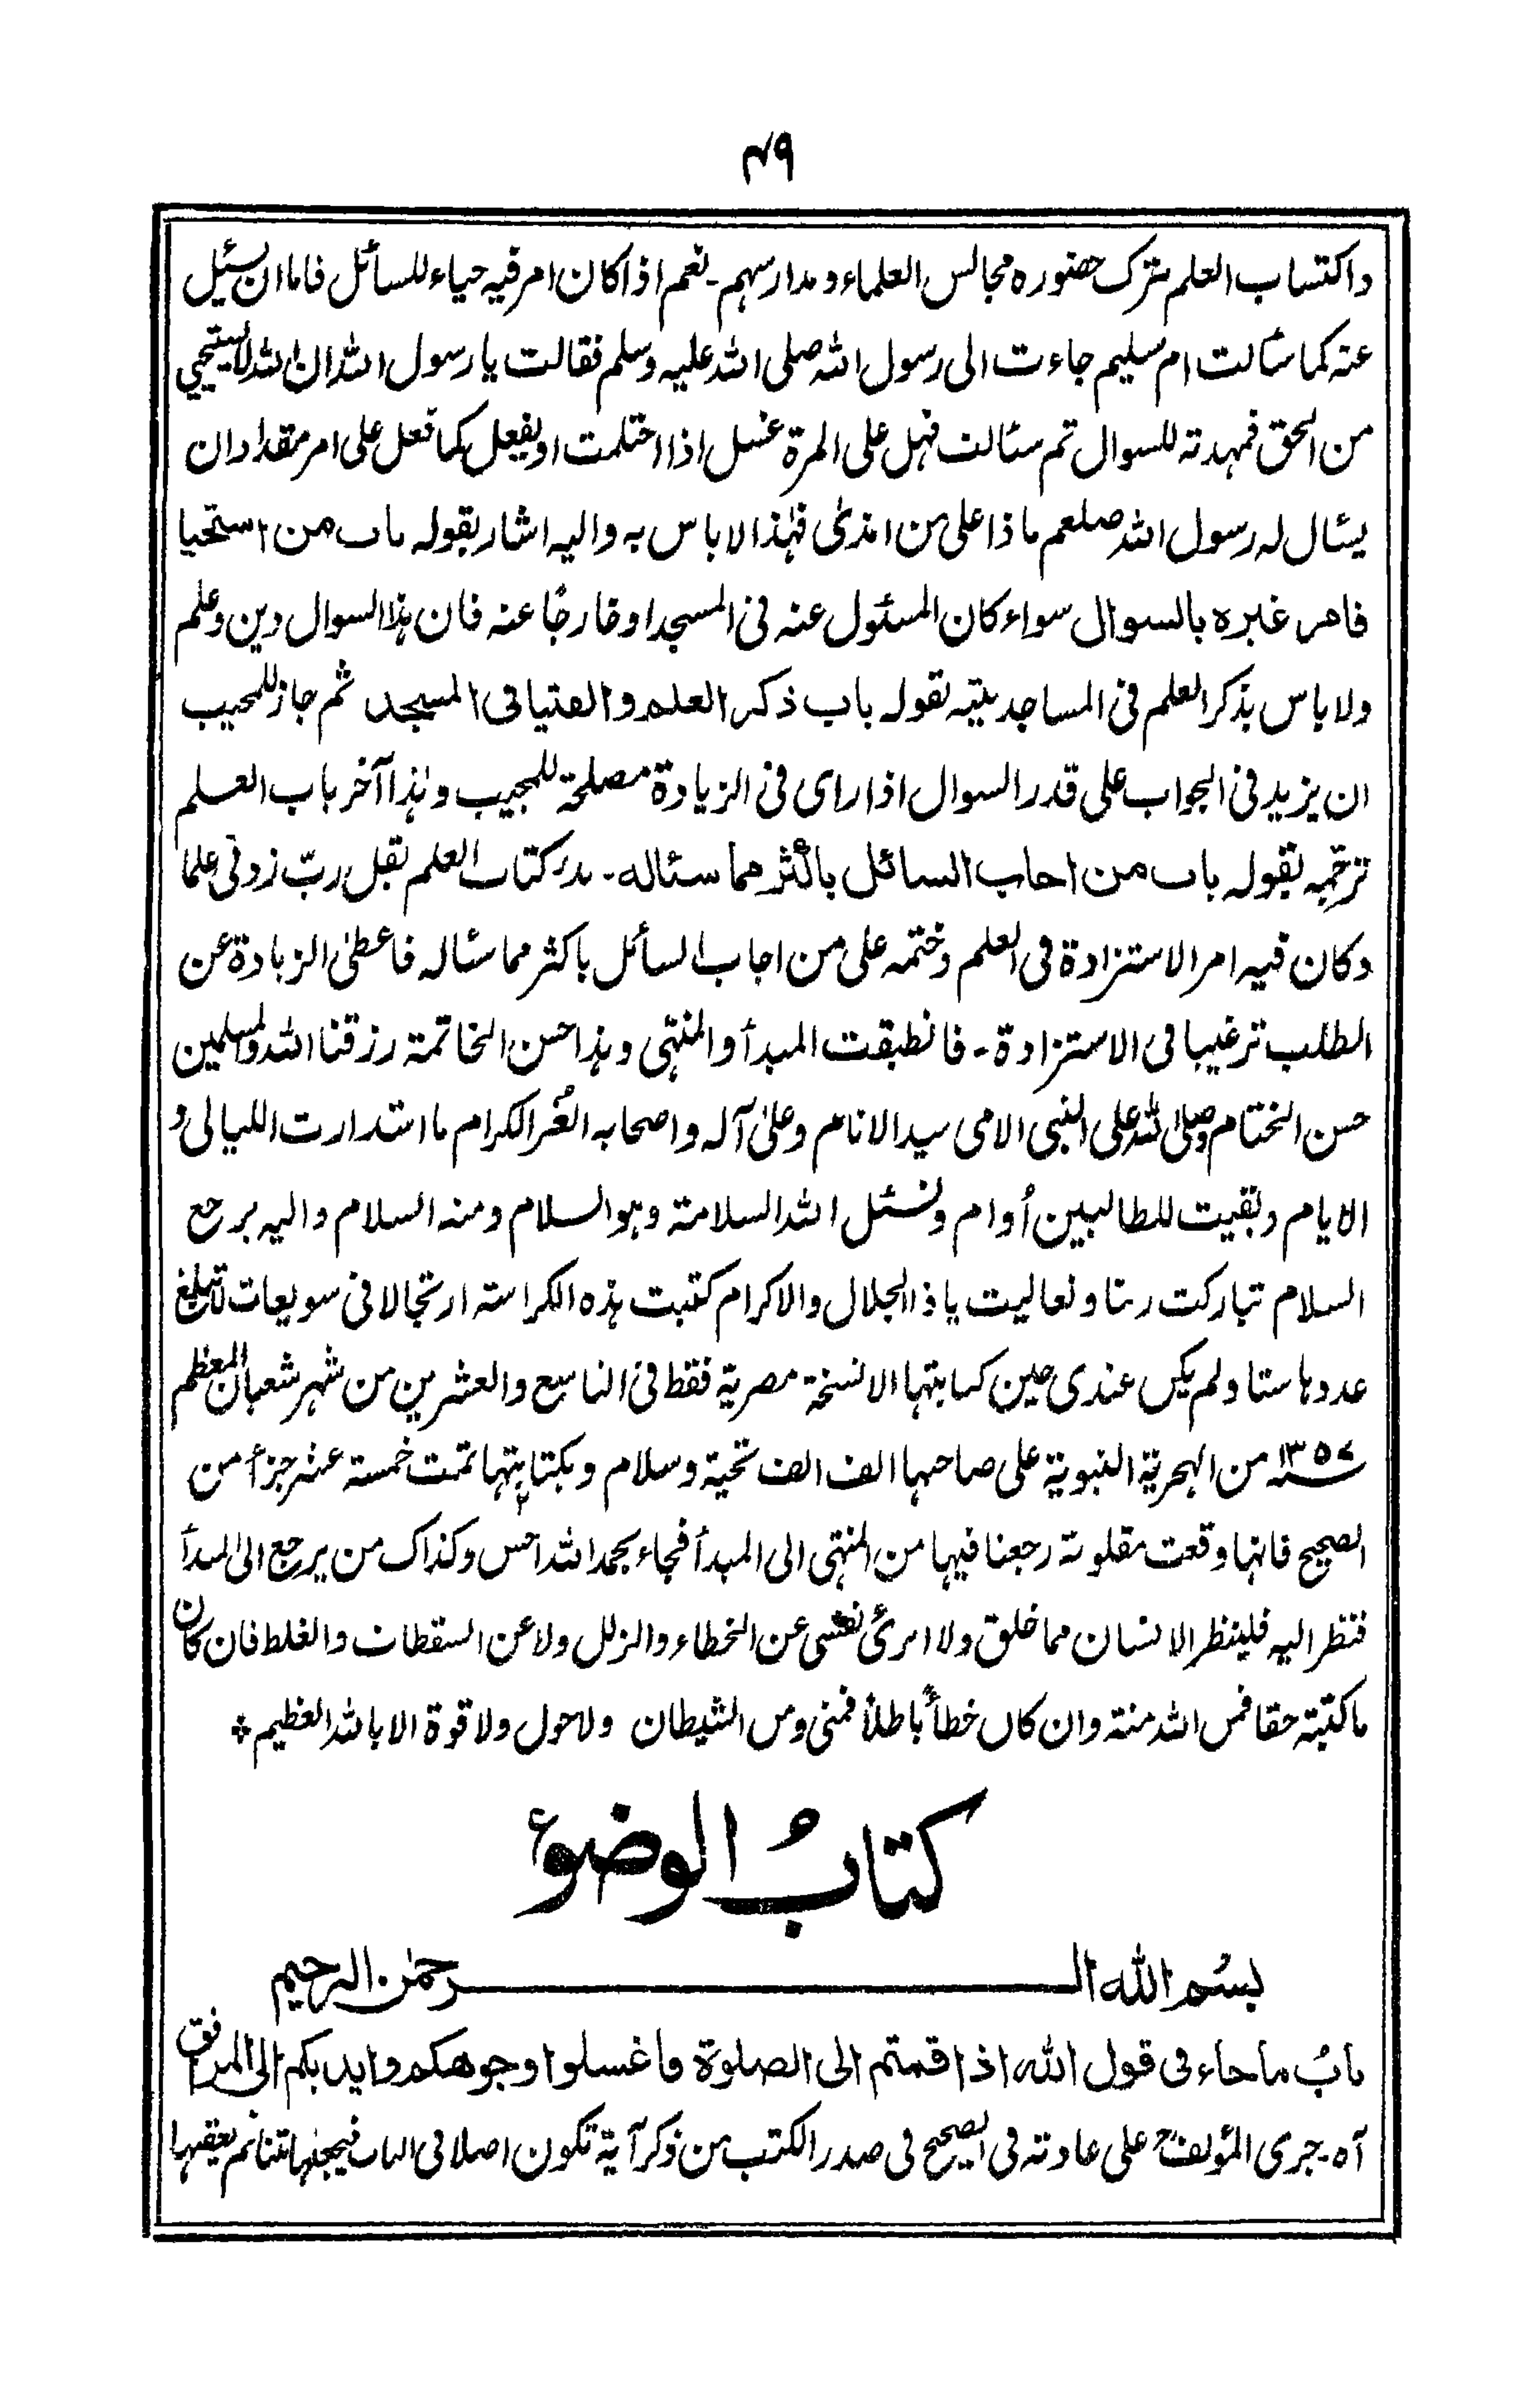 ۴۹
واكتساب العلم بترك حضوره مجالس العلماء ومدارسهم - نعم اذا كان امر فيه حياء للسائل فاما ان يسئيل
عنه كما سئالت ام سليم جاءت الى رسول الله صلى الله عليه وسلم فقالت يا رسول الله ان الله لا يستحيي
من الحق فمهدته للسوال ثم سئالت فهل على المرة غسل اذا احتلمت او يفعل كما فعل على امر مقداد ان
يسئال له رسول الله صلعم ماذا على من امذى فهذا لا باس به واليه اشار بقوله باب من استحيا
فامر غيره بالسوال سواء كان المسئول عنه فى المسجد او خارجًا عنه فان هذا السوال دين وعلم
ولا باس بذكر العلم فى المساجد بيّنه بقوله باب ذكر العلم والفتيا فى المسجد ثم جاز للمجيب
ان يزيد فى الجواب على قدر السوال اذا راى فى الزيادة مصلحة للمجيب وهذا آخر باب العلم
ترجمه بقوله باب من اجاب السائل باكثر مما سئاله - بدر كتاب العلم بقل ربّ زدنى علما
وكان فيه امر الاستزادة فى العلم وختمه على من اجاب السائل باكثر مما سئاله فاعطى الزيادة عن
الطلب ترغيبا فى الاستزادة - فانطبقت المبدأ والمنتهى وهذا حسن الخاتمة رزقنا الله والمسلمين
حسن الختام وصلى الله على النبى الامى سيد الانام وعلى آله واصحابه الغُر الكرام ما استدارت الليالى و
الايام وبقيت للطالبين أوام ونسئل الله السلامة وهو السلام ومنه السلام واليه يرجع
السلام تباركت ربنا وتعاليت يا ذا الجلال والاكرام كتبت هذه الكراسته ارتجالا فى سويعات لا تبلغ
عددها ستا ولم يكن عندى حين كتابتها الا نسخة مصرية فقط فى التاسع والعشرين من شهر شعبان المعظم
سنه ۱۳۵۷ من الهجرية النبوية على صاحبها الف الف تحية وسلام وبكتابتها تمت خمسة عشر جزأ من
الصحيح فانها وقعت مقلوبة رجعنا فيها من المنتهى الى المبدأ فجاء بحمد الله احسن وكذاك من يرجع الى المبدأ
فتظر اليه فلينظر الانسان مما خلق ولا ابرئ نفسى عن الخطاء والزلل ولا عن السقطات والغلط فان كان
ما كتبته حقا فمن الله منته وان كان خطأً باطلاً فمنى ومن الشيطان ولا حول ولا قوة الا بالله العظيم ⁘
كتابُ الوضوءِ
بسم الله الرحمٰن الرحيم
بابُ ما جاء فى قول الله اذا قمتم الى الصلوة فاغسلوا وجوهكم وايديكم الى المرافق
آه - جرى المؤلف على عادته فى الصحيح فى صدر الكتب من ذكر آية تكون اصلا فى الباب فيجعلها متنا ثم يعقبها